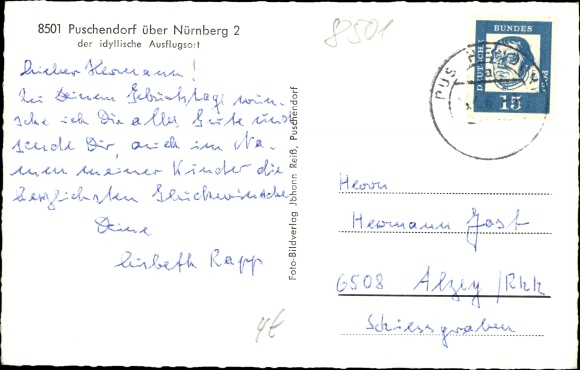 8501 Puschendorf über Nürnberg 2
der idyllische Ausflugsort
Lieber Hermann!
Zu Deinem Geburtstag wün-
sche ich Dir alles Gute und
sende Dir, auch im Na-
men meiner Kinder die
herzlichsten Glückwünsche
Deine
Lisbeth Rapp
Foto-Bildverlag Johann Reiß, Puschendorf
8501
DEUTSCHE
BUNDES
POST
15
PUS
Herrn
Hermann Jost
6508 Alzey /Rhh
Schiessgraben
4€